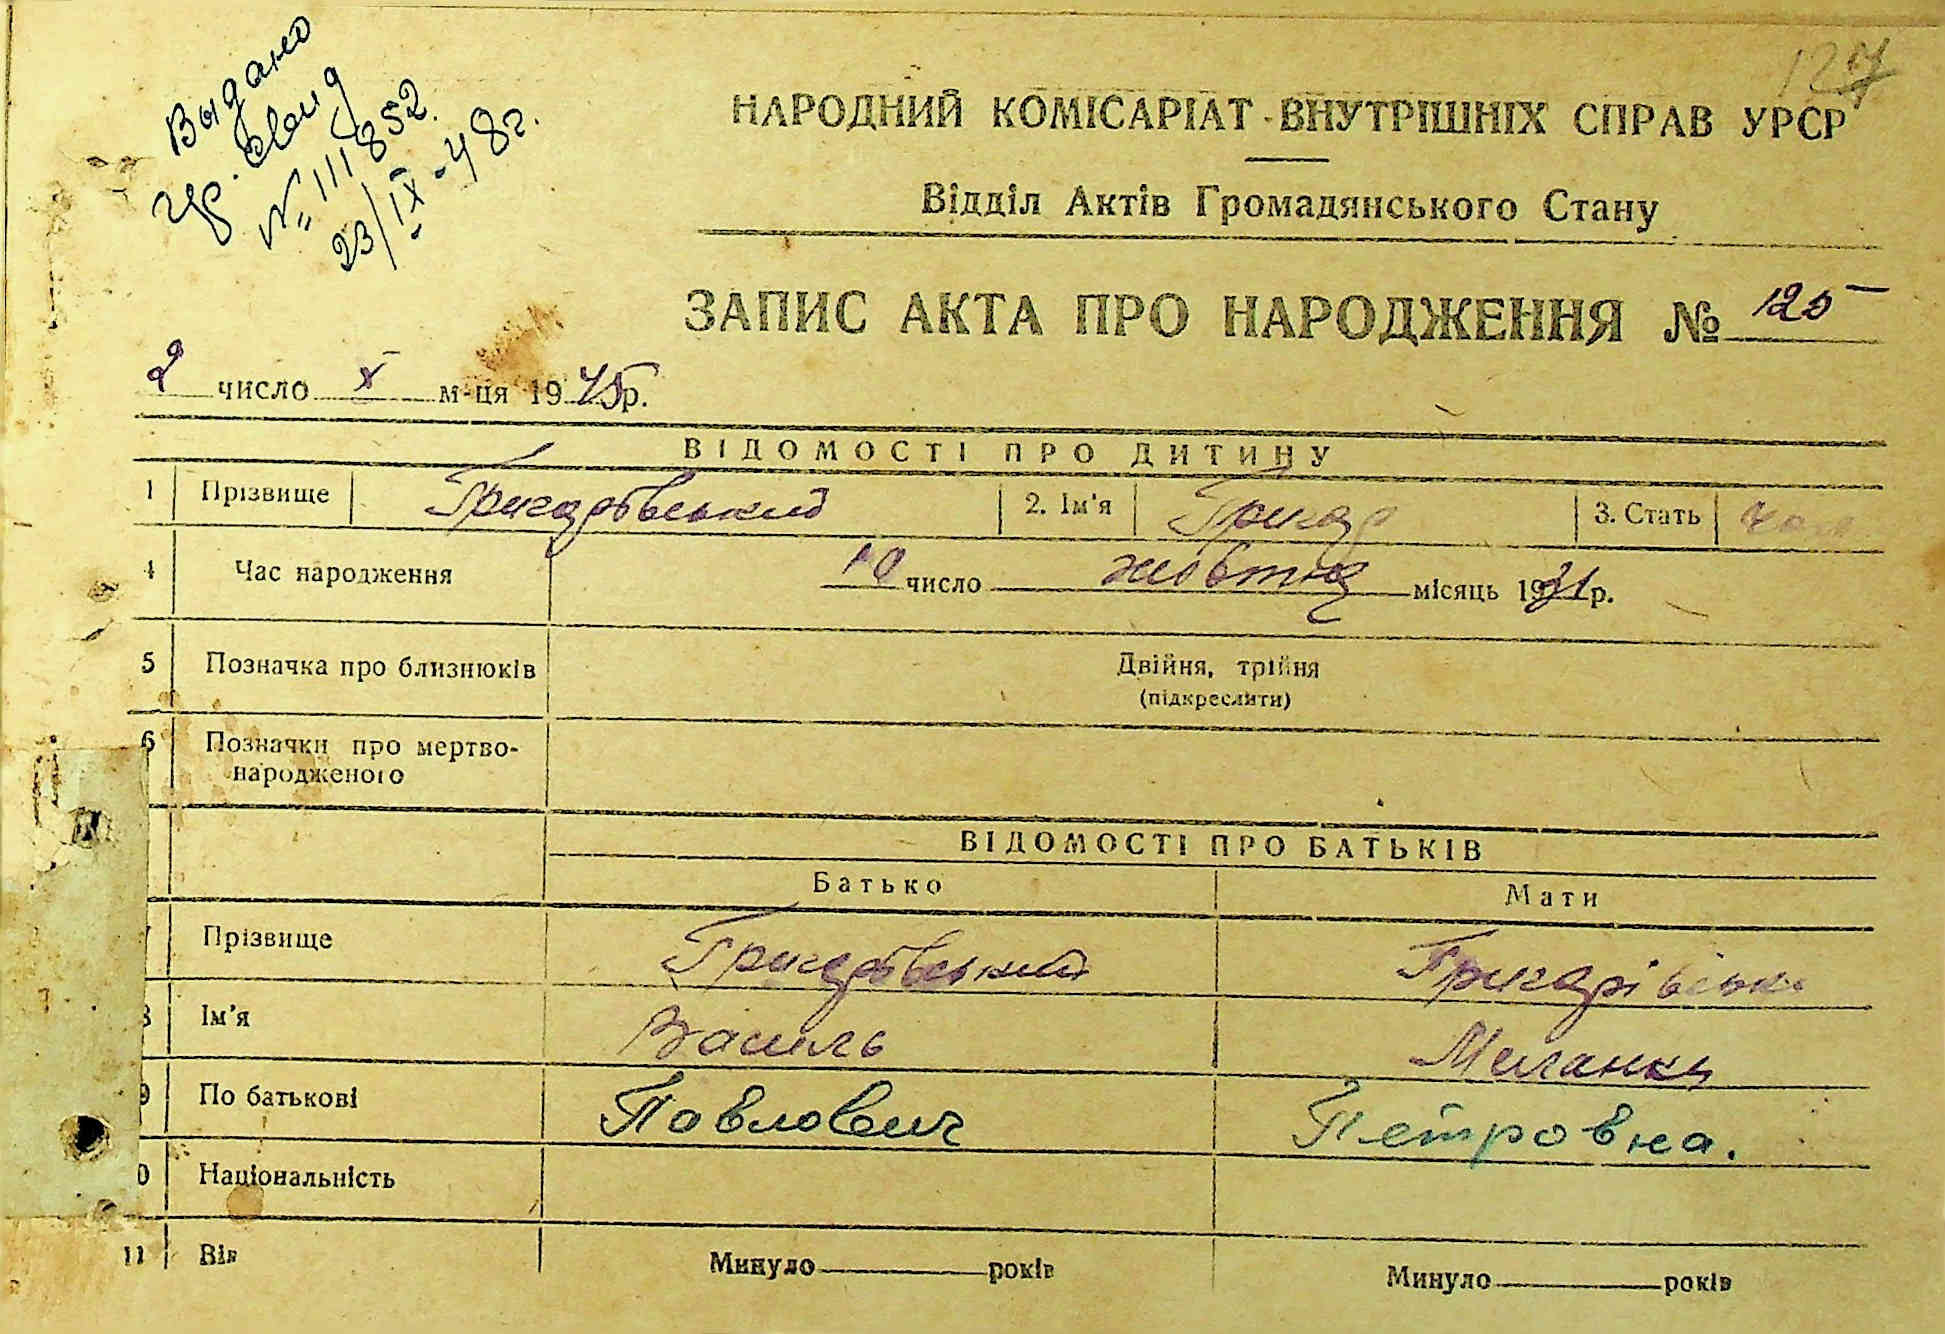 Выдано
№ 111852.
23/IX-48г.
127
НАРОДНИЙ КОМІСАРІАТ ВНУТРІШНІХ СПРАВ УРСР
Відділ Актів Громадянського Стану
ЗАПИС АКТА ПРО НАРОДЖЕННЯ № 125
2 число X м-ця 1945р.
ВІДОМОСТІ ПРО ДИТИНУ
1 Прізвище Григорівський 2. Ім'я Григор 3. Стать чол
4 Час народження 10 число жовтня місяць 1931р.
5 Позначка про близнюків Двійня, трійня
(підкреслити)
6 Позначки про мертво-
народженого
ВІДОМОСТІ ПРО БАТЬКІВ
Батько Мати
Прізвище Григорівський Григорівськ
8 Ім'я Василь Миланка
9 По батькові Павлович Петровна.
0 Національність
11 Вік Минуло років Минуло років